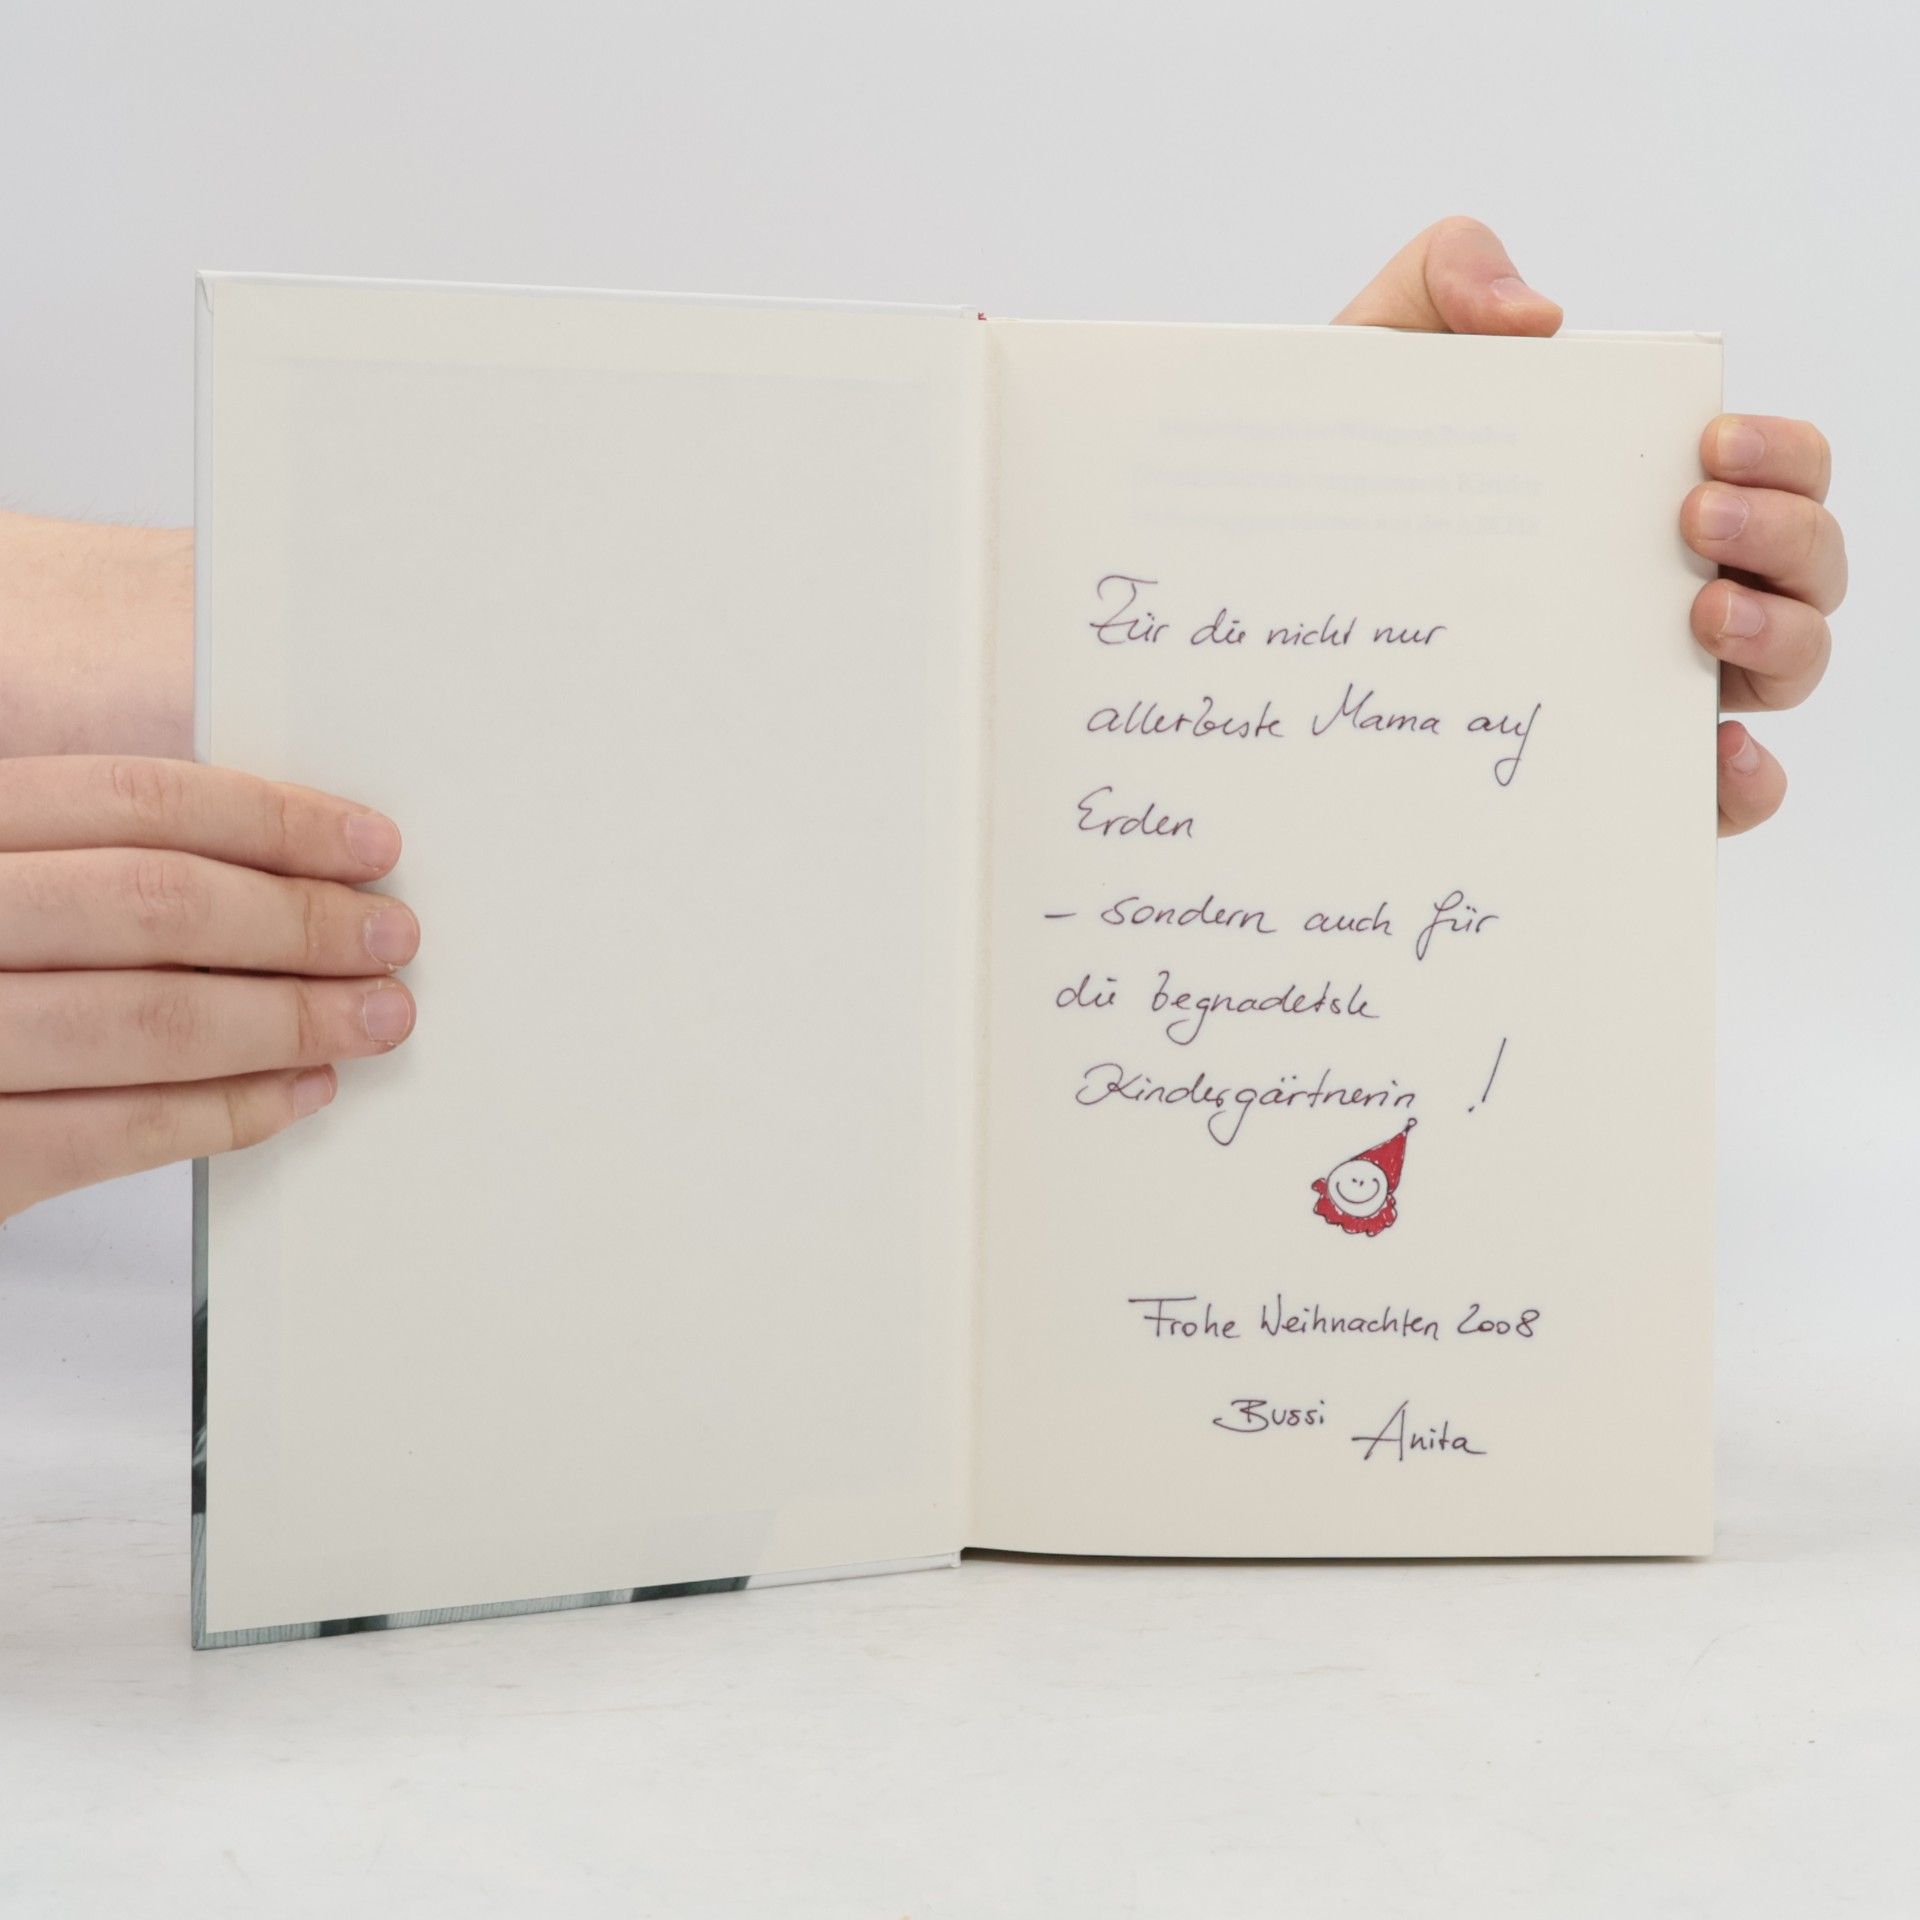 Für die nicht nur
allerbeste Mama auf
Erden
– sondern auch für
die begnadetste
Kindergärtnerin !
Frohe Weihnachten 2008
Bussi Anita